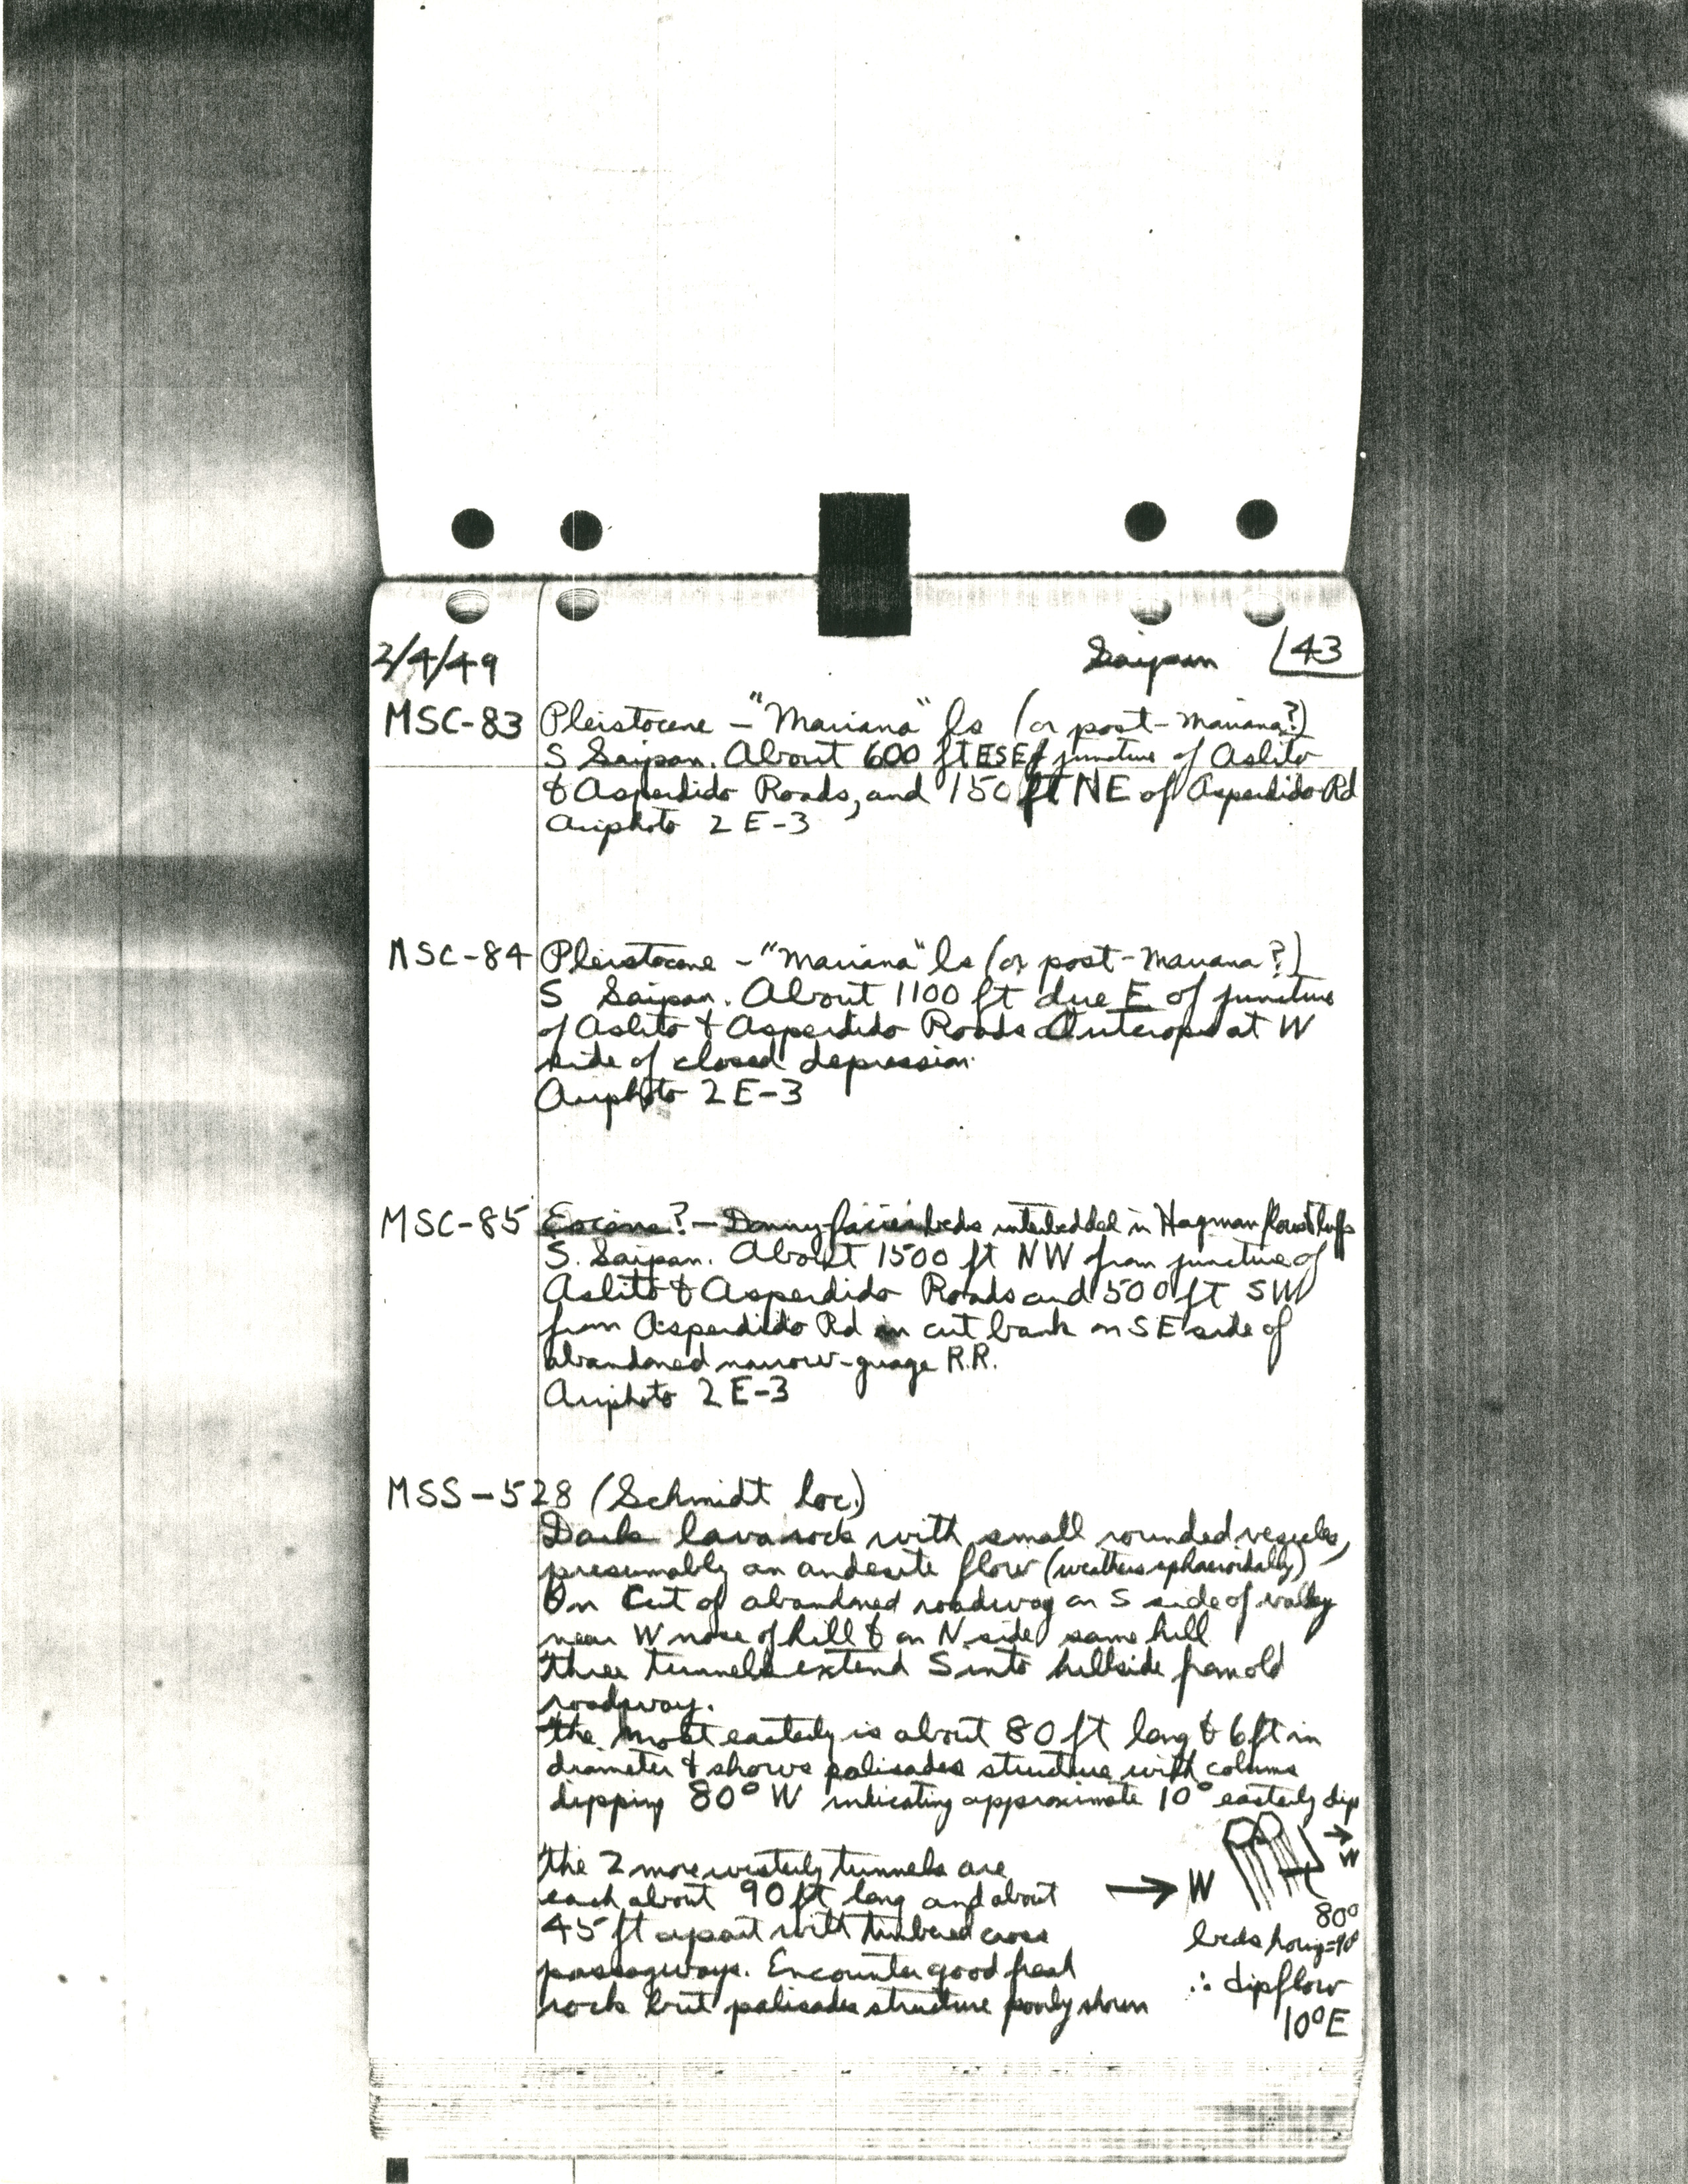 2/4/49 Saipan 43
MSC-83 Pleistocene - "Mariana" ls (or post-Mariana?)
S Saipan. About 600 ft ESE of juncture of Aslito
& Asperdido Roads, and 150 ft NE of Asperdido Rd
Airphoto 2 E-3
MSC-84 Pleistocene - "Mariana" ls (or post-Mariana?)
S Saipan. About 1100 ft due E of juncture
of Aslito & Asperdido Roads Outcrops at W
side of closed depression.
Airphoto 2 E-3
MSC-85 Eocene? - Donny facies beds interbedded in Hagman
S. Saipan. About 1500 ft NW from juncture of
Aslito & Asperdido Roads and 500 ft SW
from Asperdido Rd in cut bank on SE side of
abandoned narrow-guage R.R.
Airphoto 2 E-3
MSS-528 (Schmidt loc.)
Dark lava rock with small rounded vesicles,
presumably an andesite flow (weathers sphaeroidally)
On Cut of abandoned roadway on S side of valley
near W nose of hill & on N side same hill
Three tunnels extend S into hillside from old
roadway.
The most easterly is about 80 ft long & 6 ft in
diameter & shows palisades structure with columns
dipping 80° W indicating approximate 10° easterly dip
The 2 more westerly tunnels are
each about 90 ft long and about
45 ft apart with timbered cross
passageways. Encounter good fresh
rock but palisades structure poorly shown
→ W
→
W
80°
beds horiz=90°
∴ dip flow
10°E